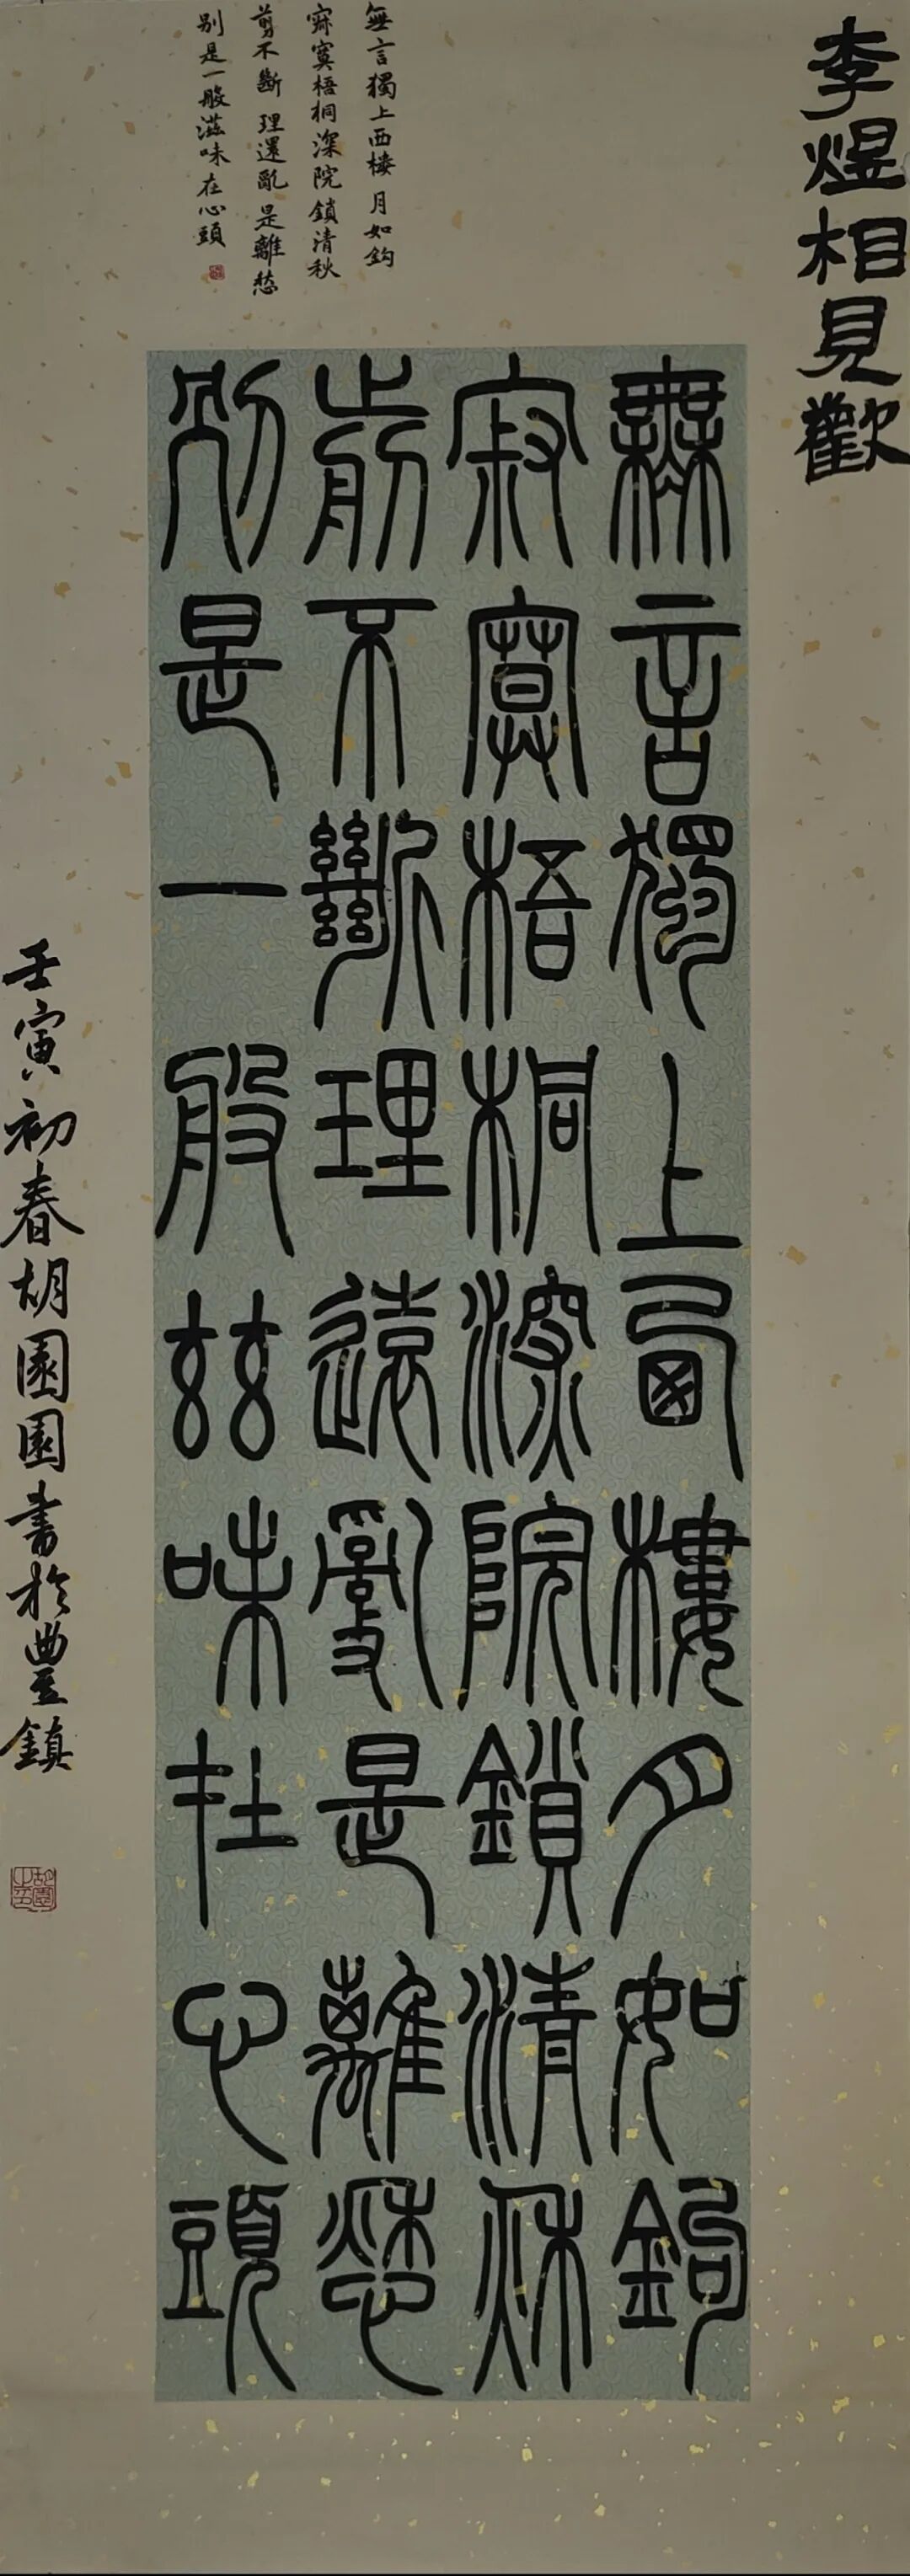 李煜相見歡
無言獨上西楼 月如鈎
寂寞梧桐深院鎖清秋
剪不斷 理還亂 是離愁
别是一般滋味在心頭
無言獨上西樓月如鉤
寂寞梧桐深院鎖清秋
前不斷理還亂是離愁
別是一般兹味在心頭
壬寅初春胡園園書於豐鎮